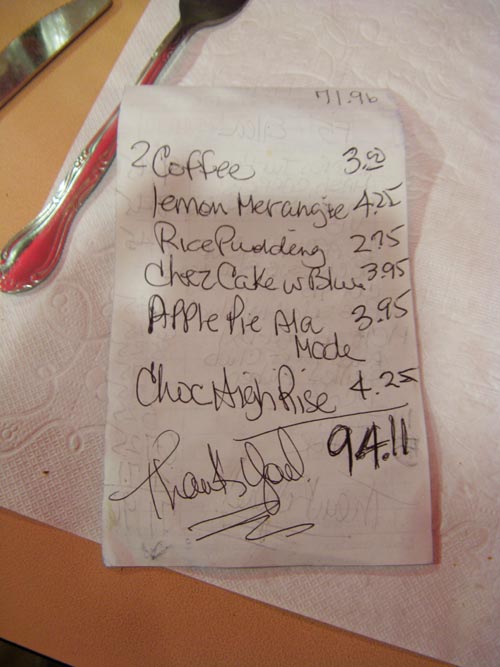 71.96
2 Coffee 3.00
lemon Merangue 4.25
Rice Pudding 2.75
Chez Cake w Blue 3.95
Apple Pie Ala 3.95
Mode
Choc High Rise 4.25
94.11
Thank You!